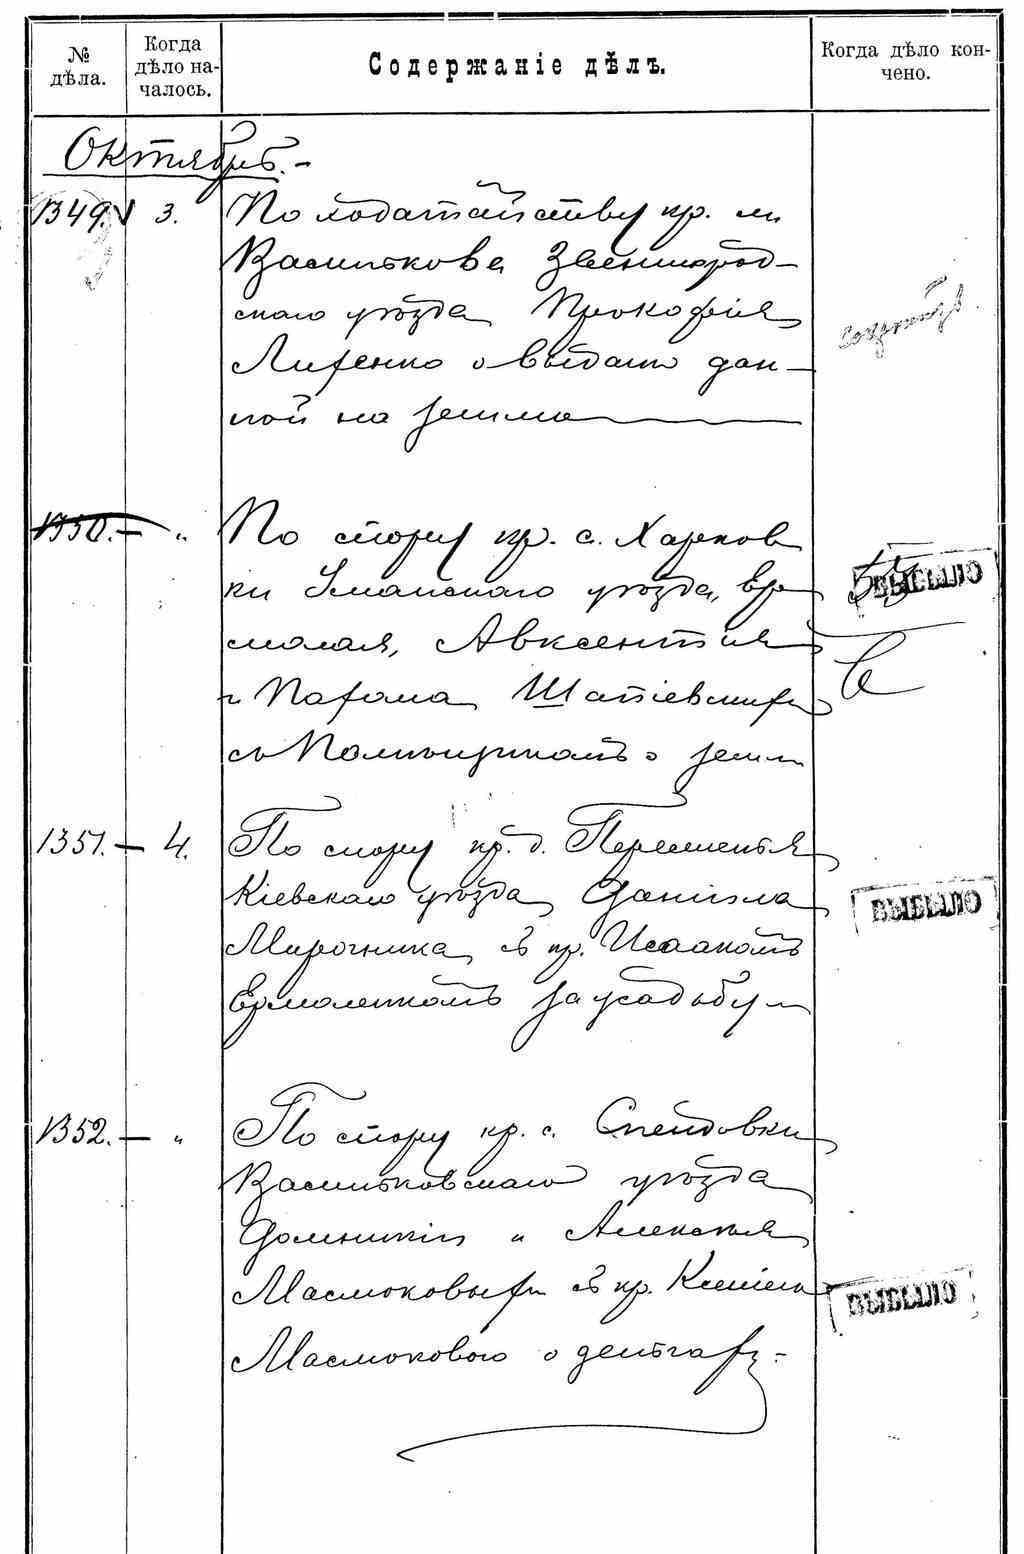 № дѣла.
Когда дѣло на-
чалось.
Содержаніе дѣлъ.
Когда дѣло кон-
чено.
Октябрь.-
1349. 3. По ходатайству кр. м.
Василькова Звенигород-
скаго уѣзда Прокофія
Лиренко о выдачи дан-
ной на землю
1350. — " По спору кр. с. Харков
ки Уманскаго уѣзда, Ер-
молая, Авксентія
и Пахома Шатіевскихъ
съ о земли
ВЫБЫЛО
1351. — 4. По спору кр. д.
Кіевскаго уѣзда Даніила
Мирочника съ кр. Исаакомъ
Ермоленкомъ за усадьбу
ВЫБЫЛО
1352. — " По спору кр. с.
Васильковскаго уѣзда
Домникіи и Алексѣя
Масюковыхъ съ кр. Ксеніею
Масюковою о деньгахъ.-
ВЫБЫЛО